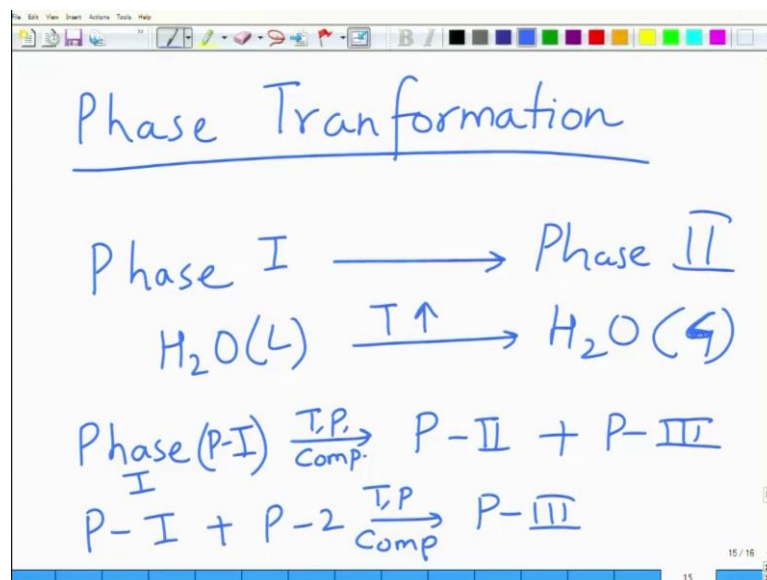 File Edit View Insert Actions Tools Help
B I
Phase Tranformation
Phase I → Phase II
H₂O(L) T↑ → H₂O(G)
Phase I (P-I) T,P, Comp. → P-II + P-III
P-I + P-2 T,P Comp → P-III
15 / 16
15